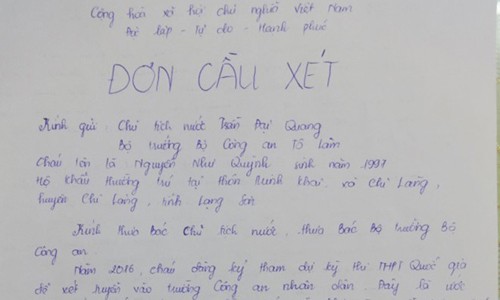 Cộng hòa xã hội chủ nghĩa Việt Nam
Độc lập - Tự do - Hạnh phúc
ĐƠN CẦU XÉT
Kính gửi: Chủ tịch nước Trần Đại Quang
Bộ trưởng Bộ Công an Tô Lâm
Cháu tên là Nguyễn Như Quỳnh sinh năm 1997
Hộ khẩu thường trú tại thôn Minh Khai, xã Chi Lăng,
huyện Chi Lăng, tỉnh Lạng Sơn
Kính thưa bác Chủ tịch nước, thưa bác Bộ trưởng Bộ
Công an
Năm 2016, cháu đăng ký tham dự kỳ thi THPT Quốc gia
để xét tuyển vào trường Công an nhân dân. Đây là ước